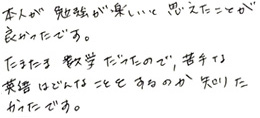 本人が 勉強が楽しいと 思えたことが
良かったです。
たまたま 数学 だったので、苦手な
英語はどんなことをするのか 知りた
かったです。